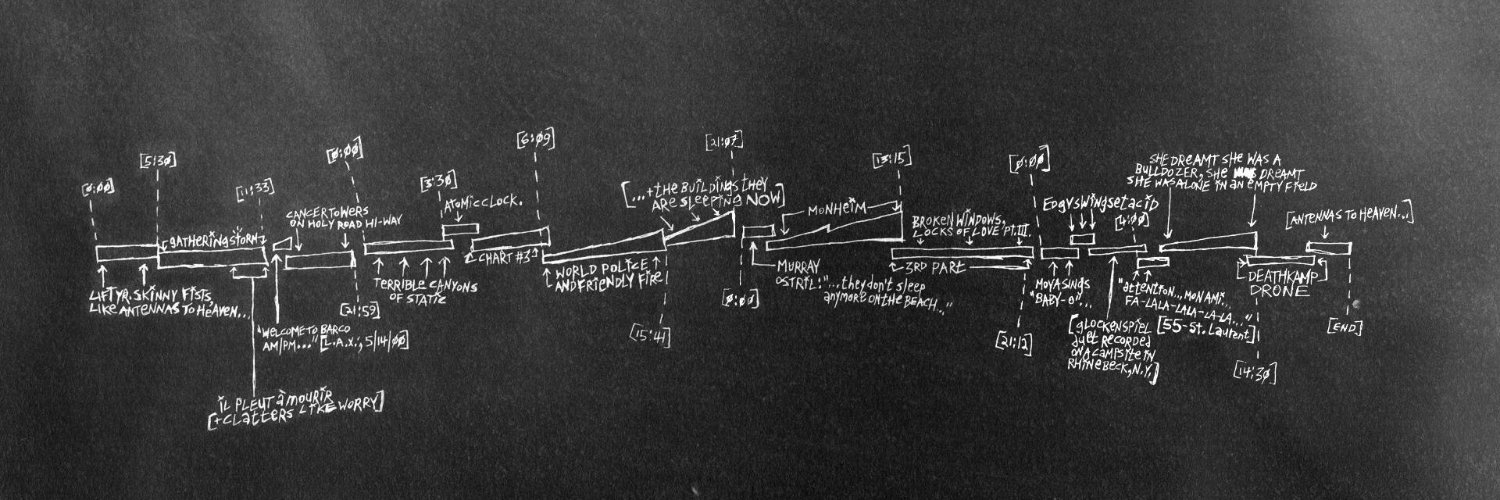 [0:00]
[5:30]
[11:33]
GATHERING STORM
LIFT YR. SKINNY FISTS,
LIKE ANTENNAS TO HEAVEN...
"WELCOME TO BARCO
AM/PM..." [L.A.X.; 5/14/00]
IL PLEUT À MOURIR
[+CLATTERS LIKE WORRY]
CANCER TOWERS
ON HOLY ROAD HI-WAY
[21:59]
[0:00]
TERRIBLE CANYONS
OF STATIC
[3:30]
ATOMIC CLOCK.
CHART #3
[6:09]
WORLD POLICE
AND FRIENDLY FIRE
[15:41]
[...+THE BUILDINGS THEY
ARE SLEEPING NOW]
[21:07]
[0:00]
MURRAY
OSTRIL: "...they don't sleep
anymore on the beach..."
MONHEIM
[13:15]
BROKEN WINDOWS,
LOCKS OF LOVE PT. III.
3RD PART
[21:12]
[0:00]
MOYA SINGS
"BABY-O"...
EDGYSWINGSETACID
[4:00]
[GLOCKENSPIEL
DUET RECORDED
ON A CAMPSITE IN
RHINEBECK, N.Y.]
"attention... MON AMI...
FA-LALA-LALA-LA-LA..."
[55-ST. LAURENT]
SHE DREAMT SHE WAS A
BULLDOZER, SHE DREAMT
SHE WAS ALONE IN AN EMPTY FIELD
DEATHKAMP
DRONE
[14:30]
[ANTENNAS TO HEAVEN...]
[END]